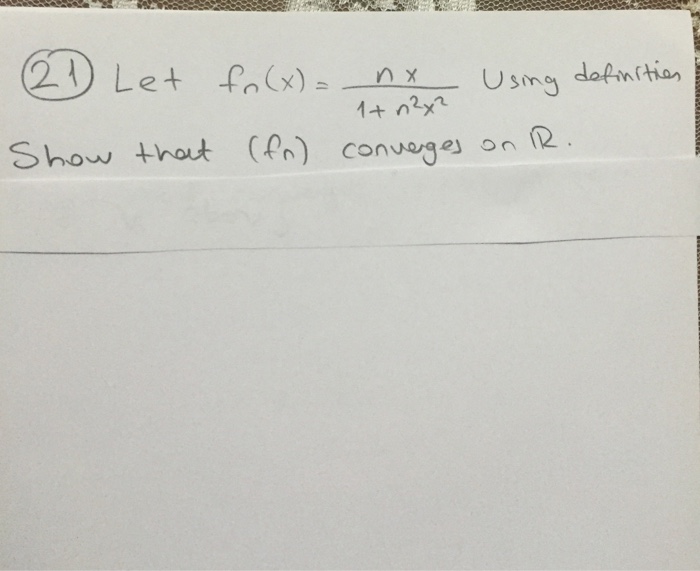 (21) Let fn(x) = nx / 1+n²x² Using definition
Show that (fn) converges on ℝ.